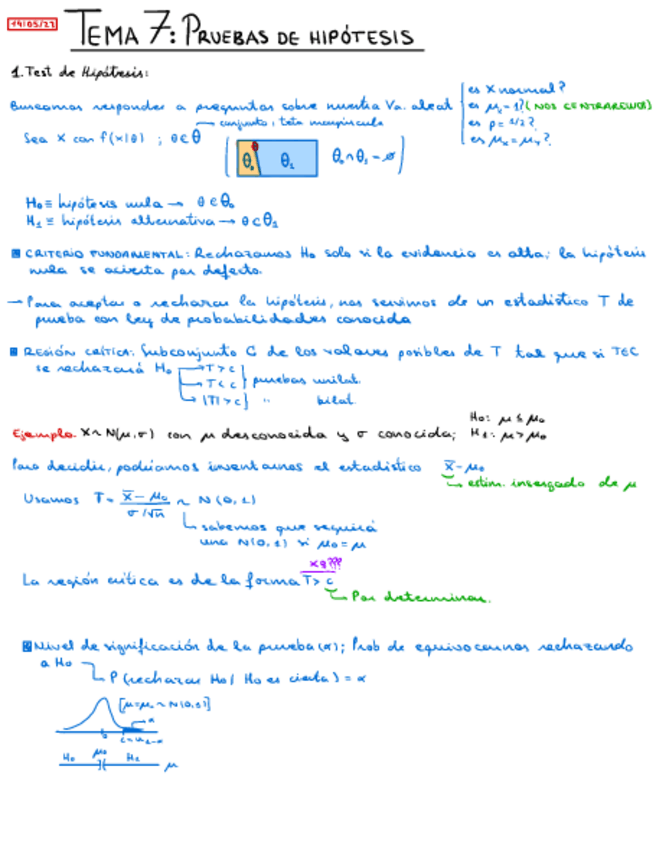 14/05/22
TEMA 7: PRUEBAS DE HIPÓTESIS
1. Test de Hipótesis:
Buscamos responder a preguntas sobre nuestra Va. aleat
es X normal?
es μₓ = 1? (NOS CENTRAREMOS)
es p = 1/2?
es μₓ = μᵧ?
conjunto, teta mayúscula
Sea X con f(x|θ) ; θ ∈ Θ
Θ₀ θ Θ₁
Θ₀ ∩ Θ₁ = ∅
H₀ ≡ hipótesis nula → θ ∈ Θ₀
H₁ ≡ hipótesis alternativa → θ ∈ Θ₁
CRITERIO FUNDAMENTAL: Rechazamos H₀ solo si la evidencia es alta; la hipótesis
nula se acierta por defecto.
→ Para aceptar o rechazar la hipótesis, nos servimos de un estadístico T de
prueba con ley de probabilidades conocida
REGIÓN CRÍTICA: Subconjunto C de los valores posibles de T tal que si T∈C
se rechazará H₀
T > c
T < c
pruebas unilat.
|T| > c
" bilat.
Ejemplo. X ~ N(μ,σ) con μ desconocida y σ conocida;
H₀: μ ≤ μ₀
H₁: μ > μ₀
Para decidir, podríamos inventarnos el estadístico x̄ - μ₀
estim. insesgado de μ
Usamos T = (x̄ - μ₀)/(σ/√n) ~ N(0,1)
sabemos que seguirá
una N(0,1) si μ₀ = μ
xq???
La región crítica es de la forma T > c
Por determinar.
Nivel de significación de la prueba (α); Prob de equivocarnos rechazando
a H₀
P(rechazar H₀ | H₀ es cierta) = α
[μ=μ₀ ~ N(0,1)]
α
0
c = u₁₋α
H₀ μ₀ H₁
μ